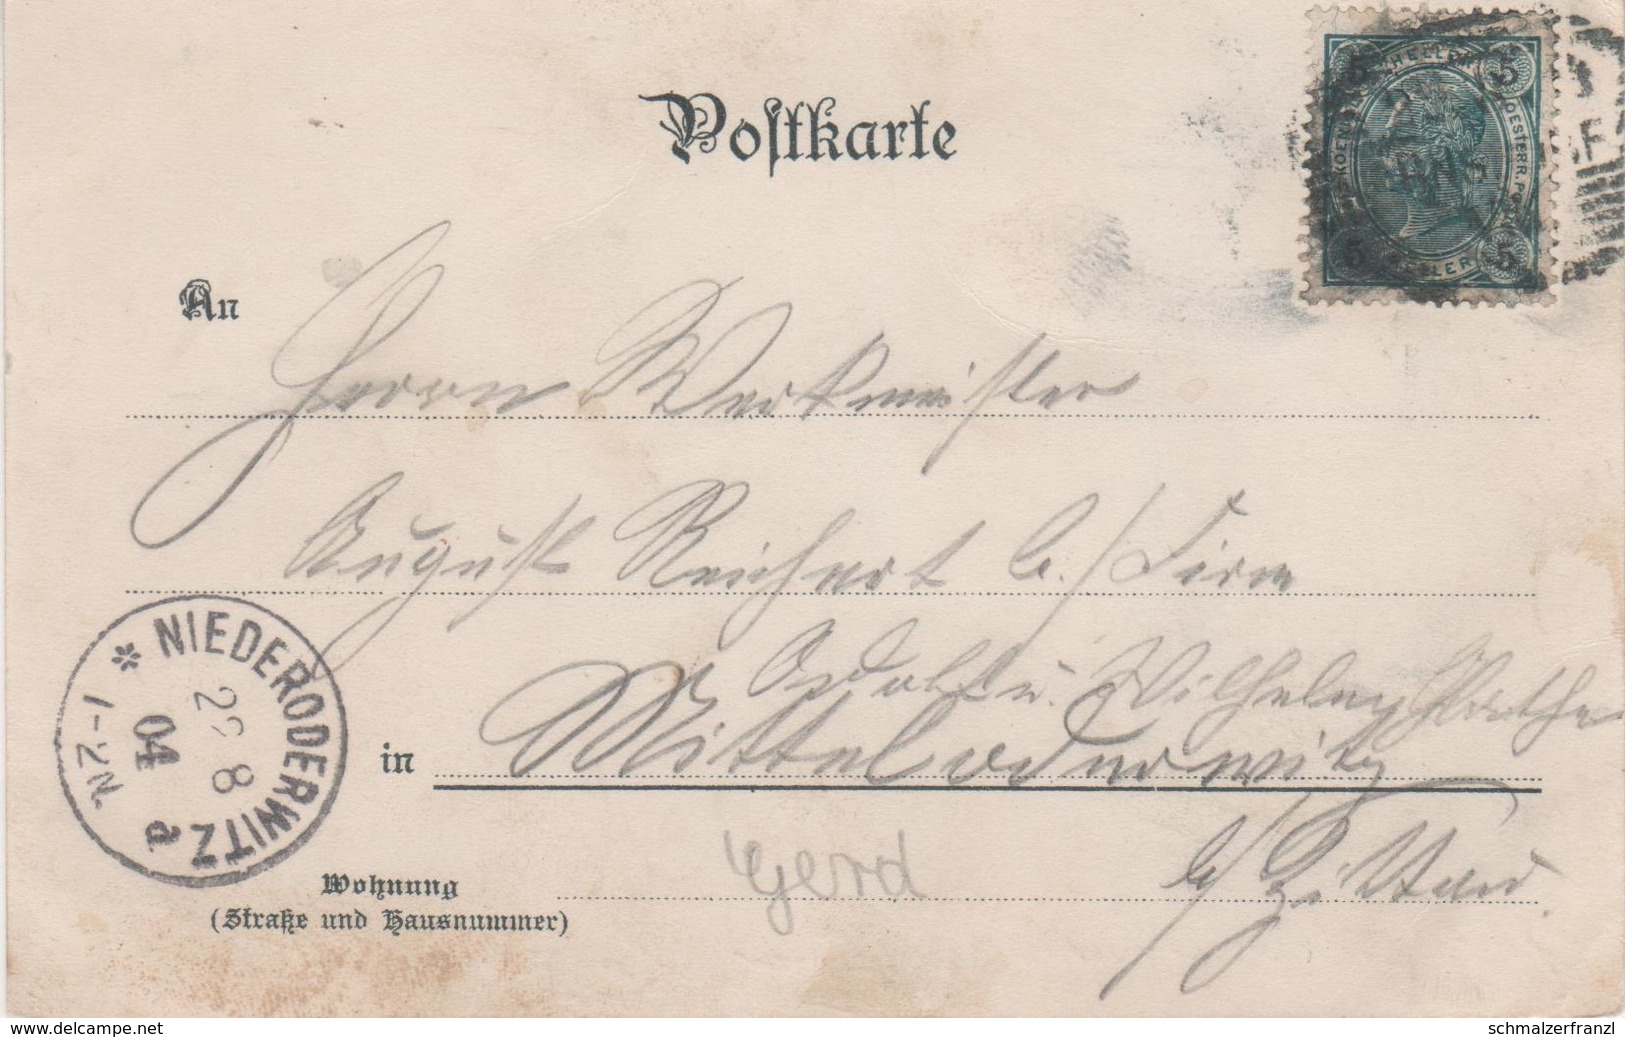 Postkarte
HELLER
5 5
KOEN
OESTERR. PO
5 HELLER 5
An
Herrn Werkmeister
August Reichert b./Firm
Adolf u. Wilhelm
in Mitteloderwitz
b/ Zittau
NIEDERODERWITZ
* N2-1 a
8
04
Gerd
Wohnung
(Straße und Hausnummer)
www.delcampe.net
schmalzerfranzl